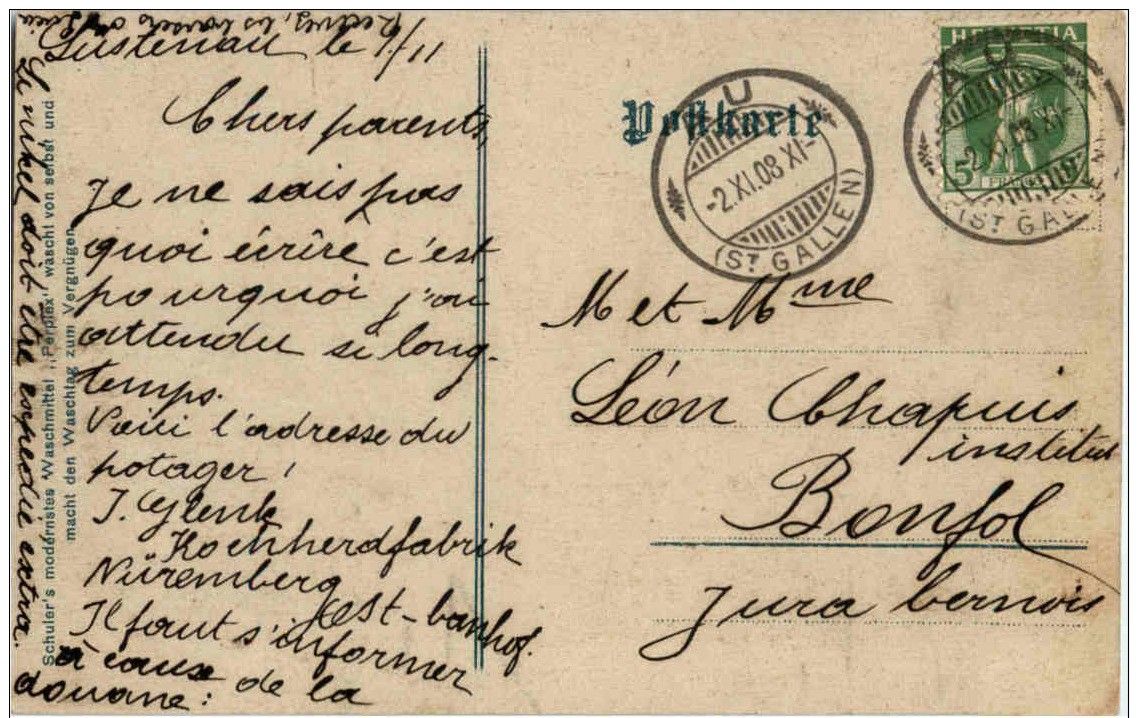 Lustenau le 1/11
Chers parents,
Je ne sais pas
quoi écrire c'est
pourquoi j'ai
attendu si long-
temps.
Voici l'adresse du
potager:
J. Glenk
Kochherdfabrik
Nüremberg
Ost-banhof.
Il faut s'informer
à cause de la
douane:
Le nikel doit être expédié extra.
Schuler's modernstes Waschmittel „Perplex" wascht von selbst und
macht den Waschtag zum Vergnügen.
Postkarte
AU
-2.XI.08 XI-
(ST GALLEN)
HELVETIA
5
AU
-2.XI.08 XI-
(ST GALLEN)
M et Mme
Léon Chapuis
institut
Bonfol
Jura bernois